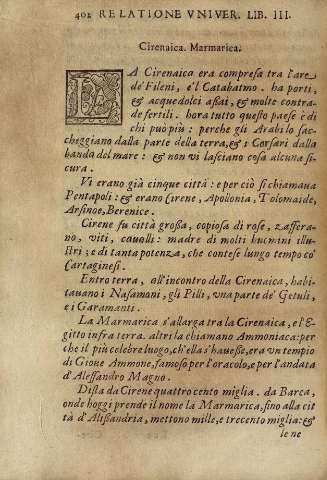 402 RELATIONE VNIVER. LIB. III.
Cirenaica. Marmarica.
LA Cirenaica era compresa tra l'are
de' Fileni, e'l Catabatmo. ha porti,
& acque dolci assai, & molte contra-
de fertili. hora tutto questo paese è di
chi può più: perche gli Arabi lo sac-
cheggiano dalla parte della terra, & i Corsari dalla
banda del mare: & non vi lasciano cosa alcuna si-
cura.
Vi erano già cinque città: e per ciò si chiamaua
Pentapoli: & erano Cirene, Apollonia, Tolomaide,
Arsinoe, Berenice.
Cirene fu città grossa, copiosa di rose, zaffera-
no, viti, cauolli: madre di molti huomini illu-
stri; e di tanta potenza, che contese lungo tempo co'
Cartaginesi.
Entro terra, all'incontro della Cirenaica, habi-
tauano i Nasamoni, gli Psilli, vna parte de' Getuli,
e i Garamanti.
La Marmarica s'allarga tra la Cirenaica, e l'E-
gitto infra terra. altri la chiamano Ammoniaca: per
che il più celebre luogo, ch'ella s'hauesse, era vn tempio
di Gioue Ammone, famoso per l'oracolo, e per l'andata
d'Alessandro Magno.
Dista da Cirene quattro cento miglia. da Barca,
onde hoggi prende il nome la Marmarica, fino alla cit
tà d'Alissandria, mettono mille, e trecento miglia: &
le ne